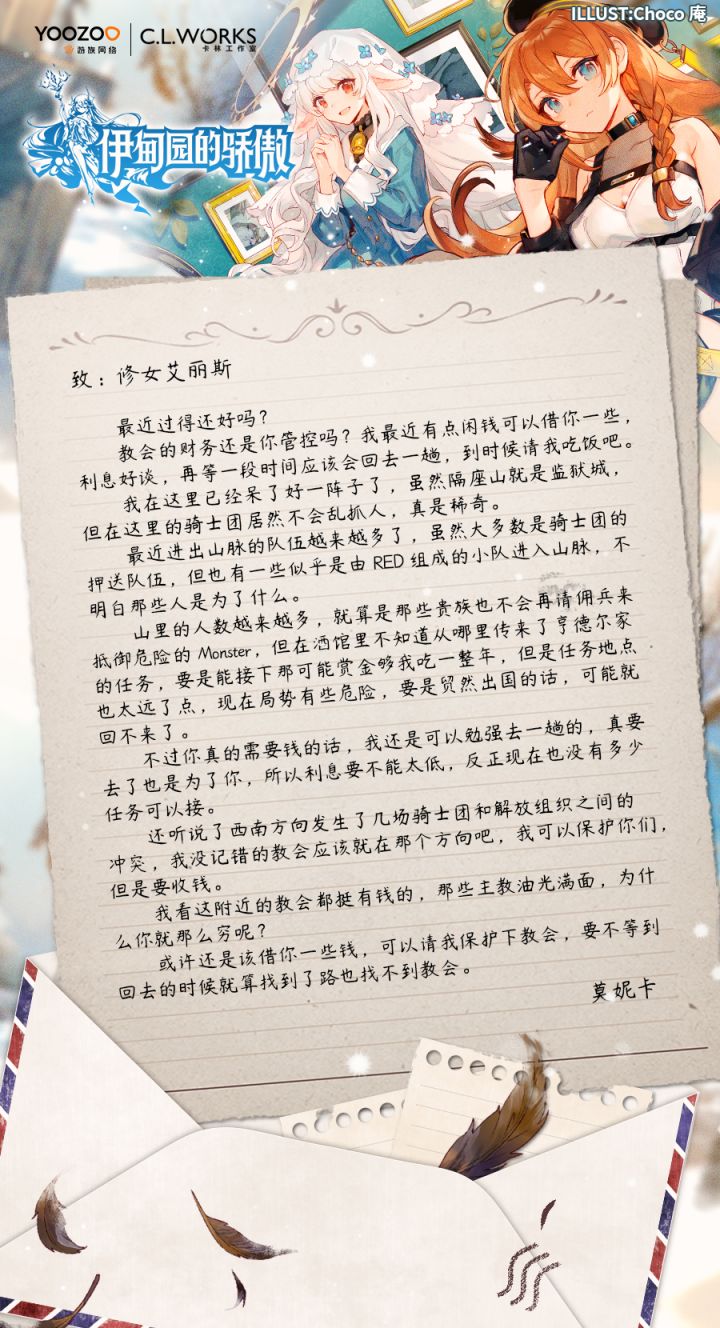 ILLUST:Choco 庵
YOOZOO 游族网络
C.L.WORKS 卡林工作室
伊甸园的骄傲
致：修女艾丽斯
最近过得还好吗？
教会的财务还是你管控吗？我最近有点闲钱可以借你一些，
利息好谈，再等一段时间应该会回去一趟，到时候请我吃饭吧。
我在这里已经呆了好一阵子了，虽然隔座山就是监狱城，
但在这里的骑士团居然不会乱抓人，真是稀奇。
最近进出山脉的队伍越来越多了，虽然大多数是骑士团的
押送队伍，但也有一些似乎是由 RED 组成的小队进入山脉，不
明白那些人是为了什么。
山里的人数越来越多，就算是那些贵族也不会再请佣兵来
抵御危险的 Monster，但在酒馆里不知道从哪里传来了亨德尔家
的任务，要是能接下那可能赏金够我吃一整年，但是任务地点
也太远了点，现在局势有些危险，要是贸然出国的话，可能就
回不来了。
不过你真的需要钱的话，我还是可以勉强去一趟的，真要
去了也是为了你，所以利息要不能太低，反正现在也没有多少
任务可以接。
还听说了西南方向发生了几场骑士团和解放组织之间的
冲突，我没记错的教会应该就在那个方向吧，我可以保护你们，
但是要收钱。
我看这附近的教会都挺有钱的，那些主教油光满面，为什
么你就那么穷呢？
或许还是该借你一些钱，可以请我保护下教会，要不等到
回去的时候就算找到了路也找不到教会。
莫妮卡